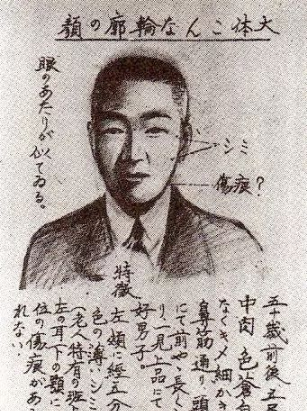 大体こんな輪廓の顔
眼のあたりが似てゐる。
シミ
傷痕?
特徴
五十歳前後五尺
中肉、色蒼白
なくキメ細か
鼻筋通り、頭
にて前や、長く
り一見上品にて
好男子。
左頬に経五分
色の薄いシミ
(老人特有の班
左の耳下の顎に
位の傷痕があ
れない。